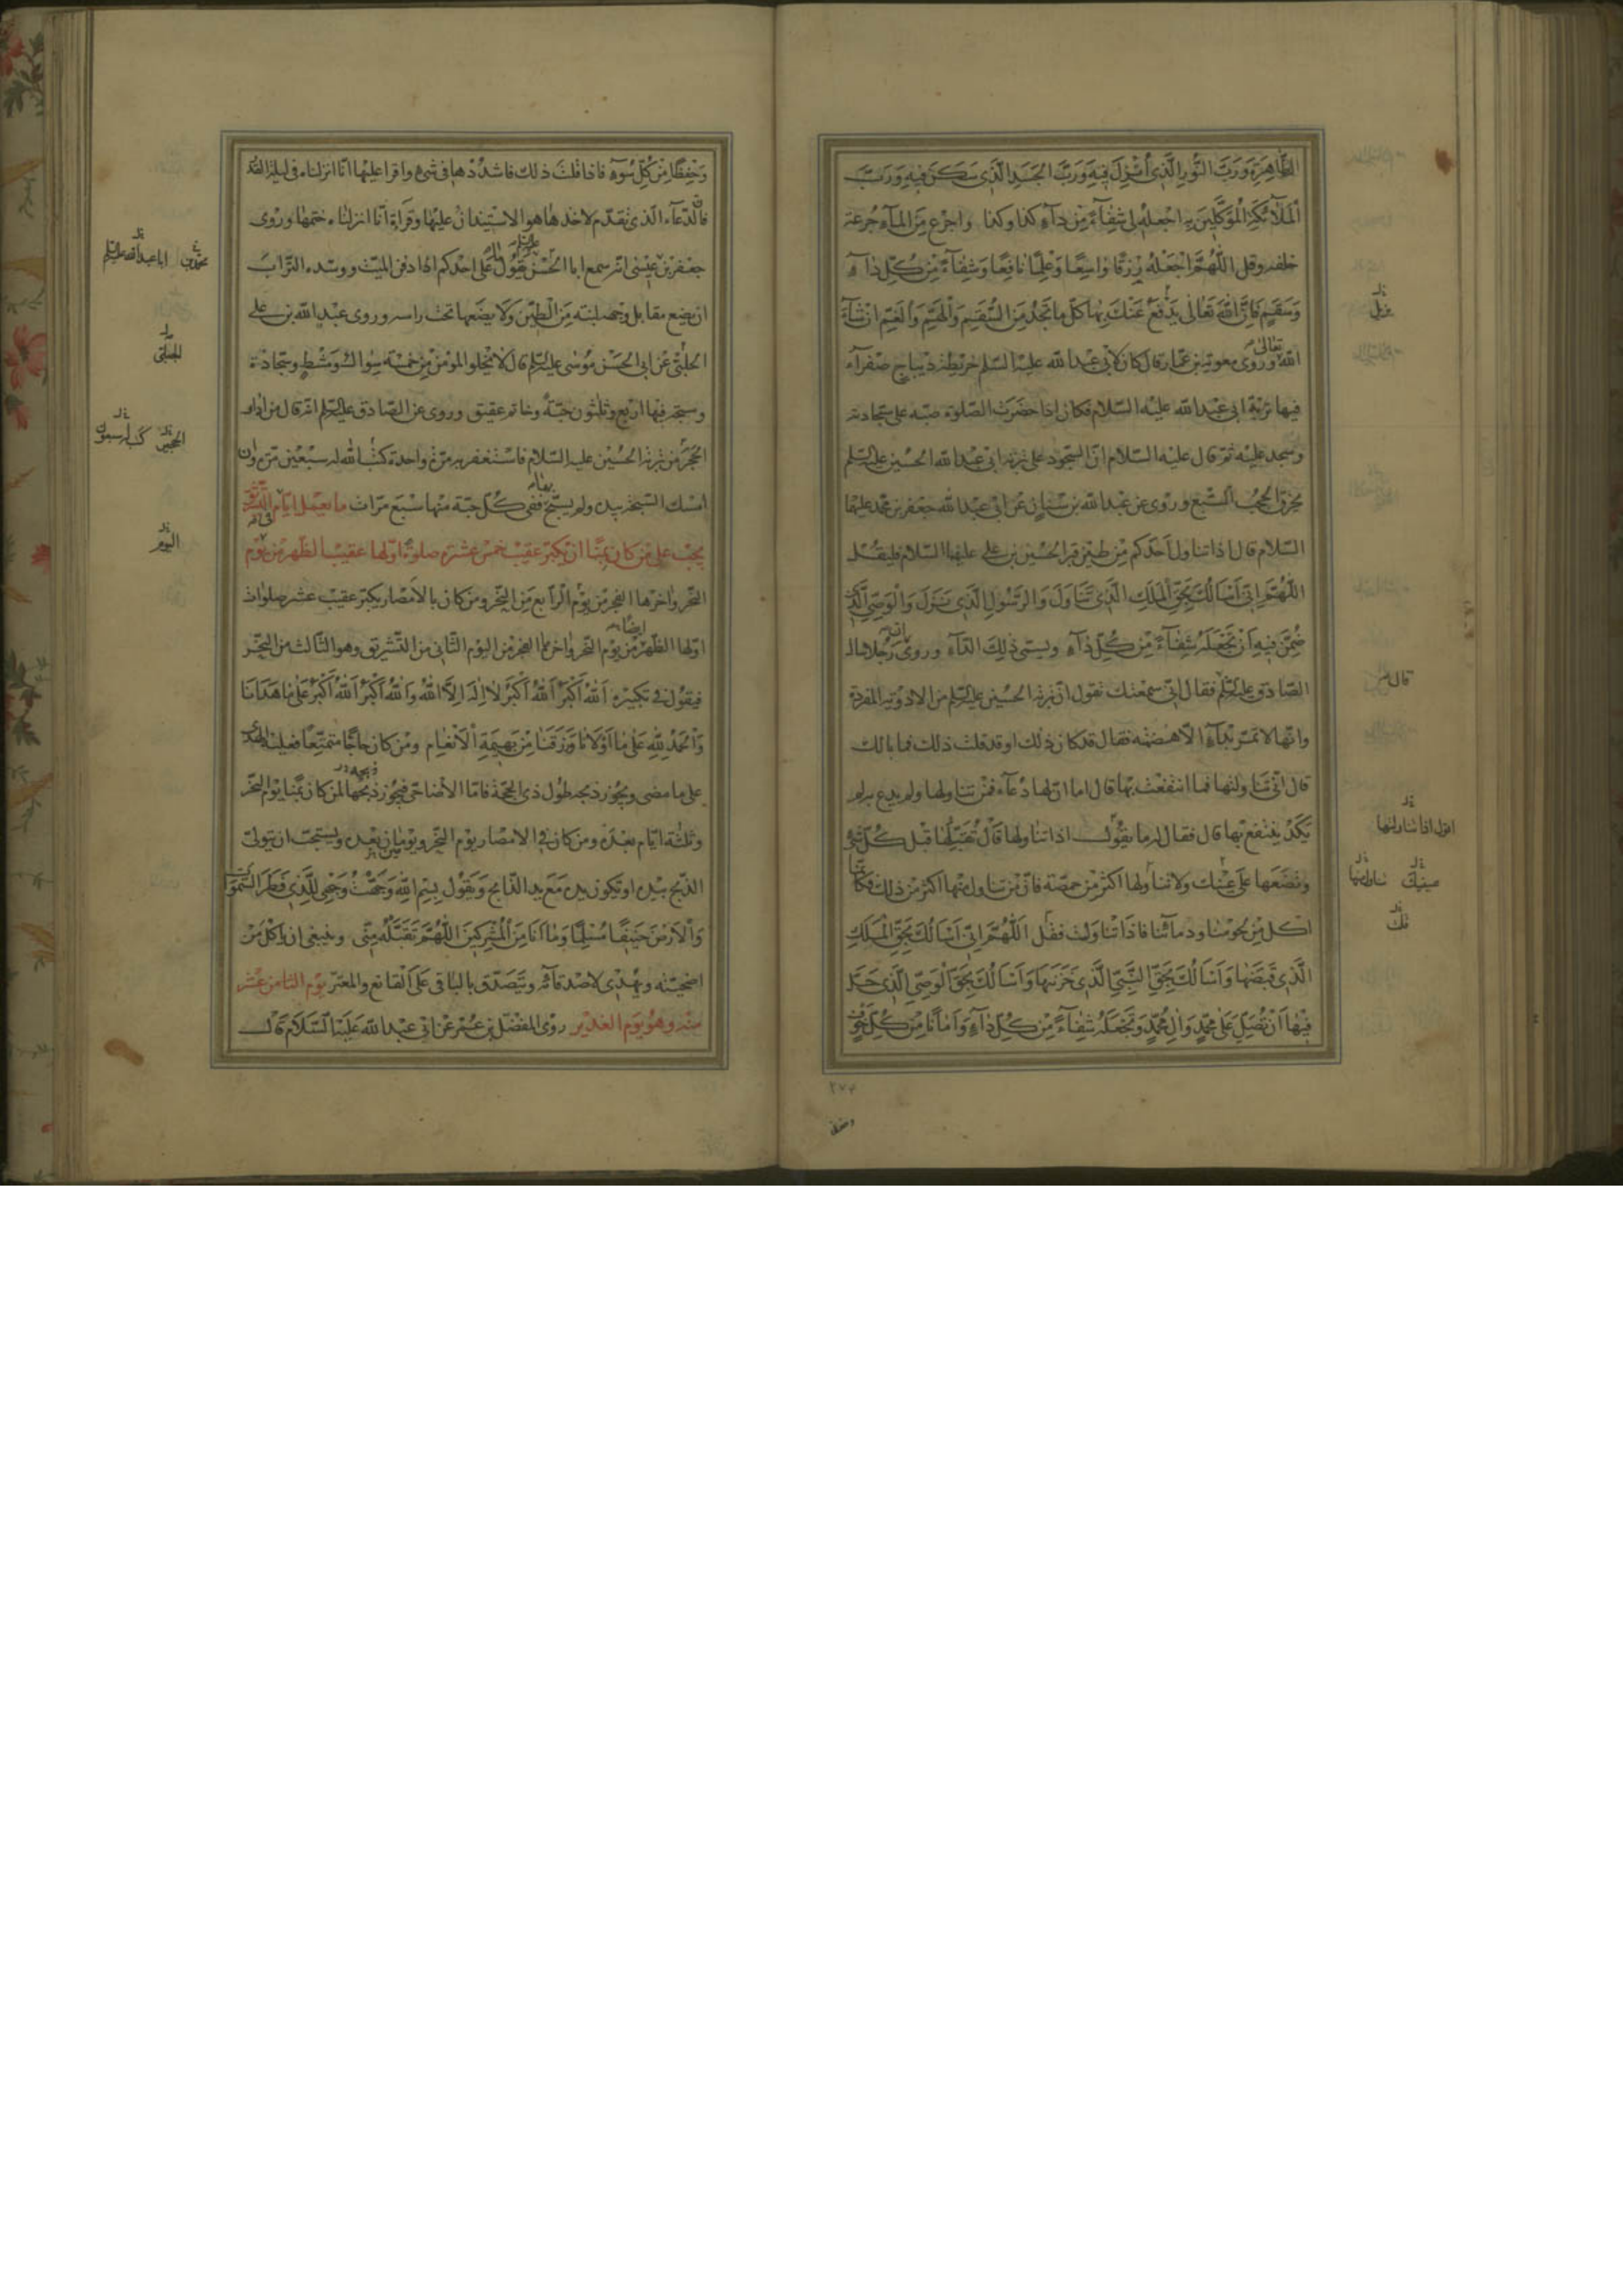 الطَّاهِرَةِ وَرَبَّ النُّورِ الَّذِي أُنْزِلَ فِيهِ وَرَبَّ الْجَسَدِ الَّذِي سَكَنَ فِيهِ وَرَبَّ
الْمَلَائِكَةِ الْمُوَكَّلِينَ بِهِ اجْعَلْهُ لِي شِفَاءً مِنْ دَاءِ كذا وكذا واجرع من الماء جرعة
خلفه وقل اللَّهُمَّ اجْعَلْهُ رِزْقًا وَاسِعًا وَعِلْمًا نَافِعًا وَشِفَاءً مِنْ كُلِّ دَاءٍ
وَسُقْمٍ فان الله تعالى يدفع عنك بها كل ما تجد من السقم والهم والغم ان شاء
الله تعالى وروى معوية بن عمار قال كان لابي عبد الله عليه السلم خريطة ديباج صفراء
فيها تربة ابي عبد الله عليه السلام فكان اذا حضرت الصلوة صبه على سجادته
وسجد عليه ثم قال عليه السلام ان السجود على تربة ابي عبد الله الحسين عليه السلم
يخرق الحجب السبع وروى عن عبد الله بن سنان عن ابي عبد الله جعفر بن محمد عليهما
السلام قال اذا تناول احدكم من طين قبر الحسين بن علي عليهما السلام فليقل
اللَّهُمَّ إِنِّي أَسْأَلُكَ بِحَقِّ الْمَلَكِ الَّذِي تَنَاوَلَ وَالرَّسُولِ الَّذِي نَزَلَ وَالْوَصِيِّ الَّذِي
ضُمِّنَ فِيهِ أَنْ تَجْعَلَهُ شِفَاءً مِنْ كُلِّ دَاءٍ ويسمى ذلك الداء وروى ان رجلا سال
الصادق عليه السلم فقال اني سمعتك تقول ان تربة الحسين عليه السلم من الادوية المفردة
وانها لا تمر بداء الا هضمته فقال قد كان ذلك او قد قلت ذلك فما بالك
قال اني تناولتها فما انتفعت بها قال اما ان لها دعاء فمن تناولها ولم يدع به لم
يكد ينتفع بها قال فقال له ما يقول اذا تناولها قال تقبلها قبل كل شئ
وتضعها على عينيك ولا تناولها اكثر من حمصة فان من تناول منها اكثر من ذلك فكانما
اكل من لحومنا ودمائنا فاذا تناولت فقل اللَّهُمَّ إِنِّي أَسْأَلُكَ بِحَقِّ الْمَلَكِ
الَّذِي قَبَضَهَا وَأَسْأَلُكَ بِحَقِّ النَّبِيِّ الَّذِي خَزَنَهَا وَأَسْأَلُكَ بِحَقِّ الْوَصِيِّ الَّذِي حَلَّ
فِيهَا أَنْ تُصَلِّيَ عَلَى مُحَمَّدٍ وَآلِ مُحَمَّدٍ وَتَجْعَلَهُ شِفَاءً مِنْ كُلِّ دَاءٍ وَأَمَانًا مِنْ كُلِّ خَوْفٍ
ينزل
قال
اقول اذا تناولتها
عينيك
منك
وَحِفْظًا مِنْ كُلِّ سُوءٍ فاذا قلت ذلك فاشددها في شئ واقرا عليها انا انزلناه في ليلة القدر
فان الدعاء الذي تقدم لاخذها هو الاستيذان عليها وقراءة انا انزلناه ختمها وروى
جعفر بن عيسى انه سمع ابا الحسن عليه السلم يقول ما على احدكم اذا دفن الميت ووسده التراب
ان يضع مقابل وجهه لبنة من الطين ولا يضعها تحت راسه وروى عبد الله بن علي
الحلبي عن ابي الحسن موسى عليه السلم قال لا يخلو المومن من خمسة سواك ومشط وسجادة
وسبحة فيها اربع وثلثون حبة وخاتم عقيق وروى عن الصادق عليه السلم انه قال من ادار
الحجر من تربة الحسين عليه السلام فاستغفر به مرة واحدة كتب الله له سبعين مرة وان
امسك السبحة بيده ولم يسبح بها ففي كل حبة منها سبع مرات ما يعمل ايام التشريق
يجب على من كان بمنا ان يكبر عقيب خمس عشرة صلوة اولها عقيب الظهر من يوم
النحر واخرها الفجر من يوم الرابع من النحر ومن كان بالامصار يكبر عقيب عشر صلوات
اولها الظهر من يوم النحر ايضا واخرها الفجر من اليوم الثاني من التشريق وهو الثالث من النحر
فيقول في تكبيره اَللهُ أَكْبَرُ اَللهُ أَكْبَرُ لَا إِلَهَ إِلَّا اللهُ وَاللهُ أَكْبَرُ اَللهُ أَكْبَرُ عَلَى مَا هَدَانَا
وَالْحَمْدُ لِلَّهِ عَلَى مَا أَوْلَانَا وَرَزَقَنَا مِنْ بَهِيمَةِ الْأَنْعَامِ ومن كان حاجا متمتعا فعليه الهدى
على ما مضى ويجوز ذبحه طول ذي الحجة فاما الأضاحي فيجوز ذبحها لمن كان بمنا يوم النحر
وثلثة ايام بعده ومن كان في الامصار يوم النحر ويومان بعده ويستحب ان يتولى
الذبح بيده او تكون يده مع يد الذابح ويقول بِسْمِ اللهِ وَجَّهْتُ وَجْهِيَ لِلَّذِي فَطَرَ السَّمَوَاتِ
وَالْأَرْضَ حَنِيفًا مُسْلِمًا وَمَا أَنَا مِنَ الْمُشْرِكِينَ اللَّهُمَّ تَقَبَّلْهُ مِنِّي وينبغي ان ياكل من
اضحيته ويهدى لاصدقائه ويتصدق بالباقي على القانع والمعتر يوم الثامن عشر
منه وهو يوم الغدير روى المفضل بن عمر عن ابي عبد الله عليه السلام قال
محمد بن
ابا عبد الله عليه السلم
اليوم